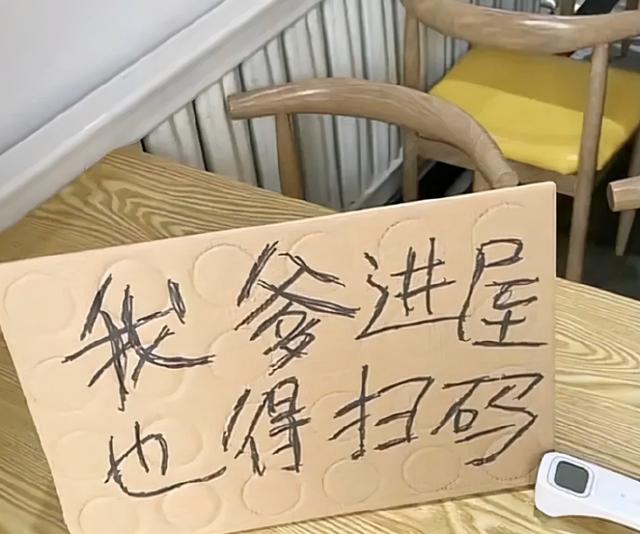 我爹进屋
也得扫码